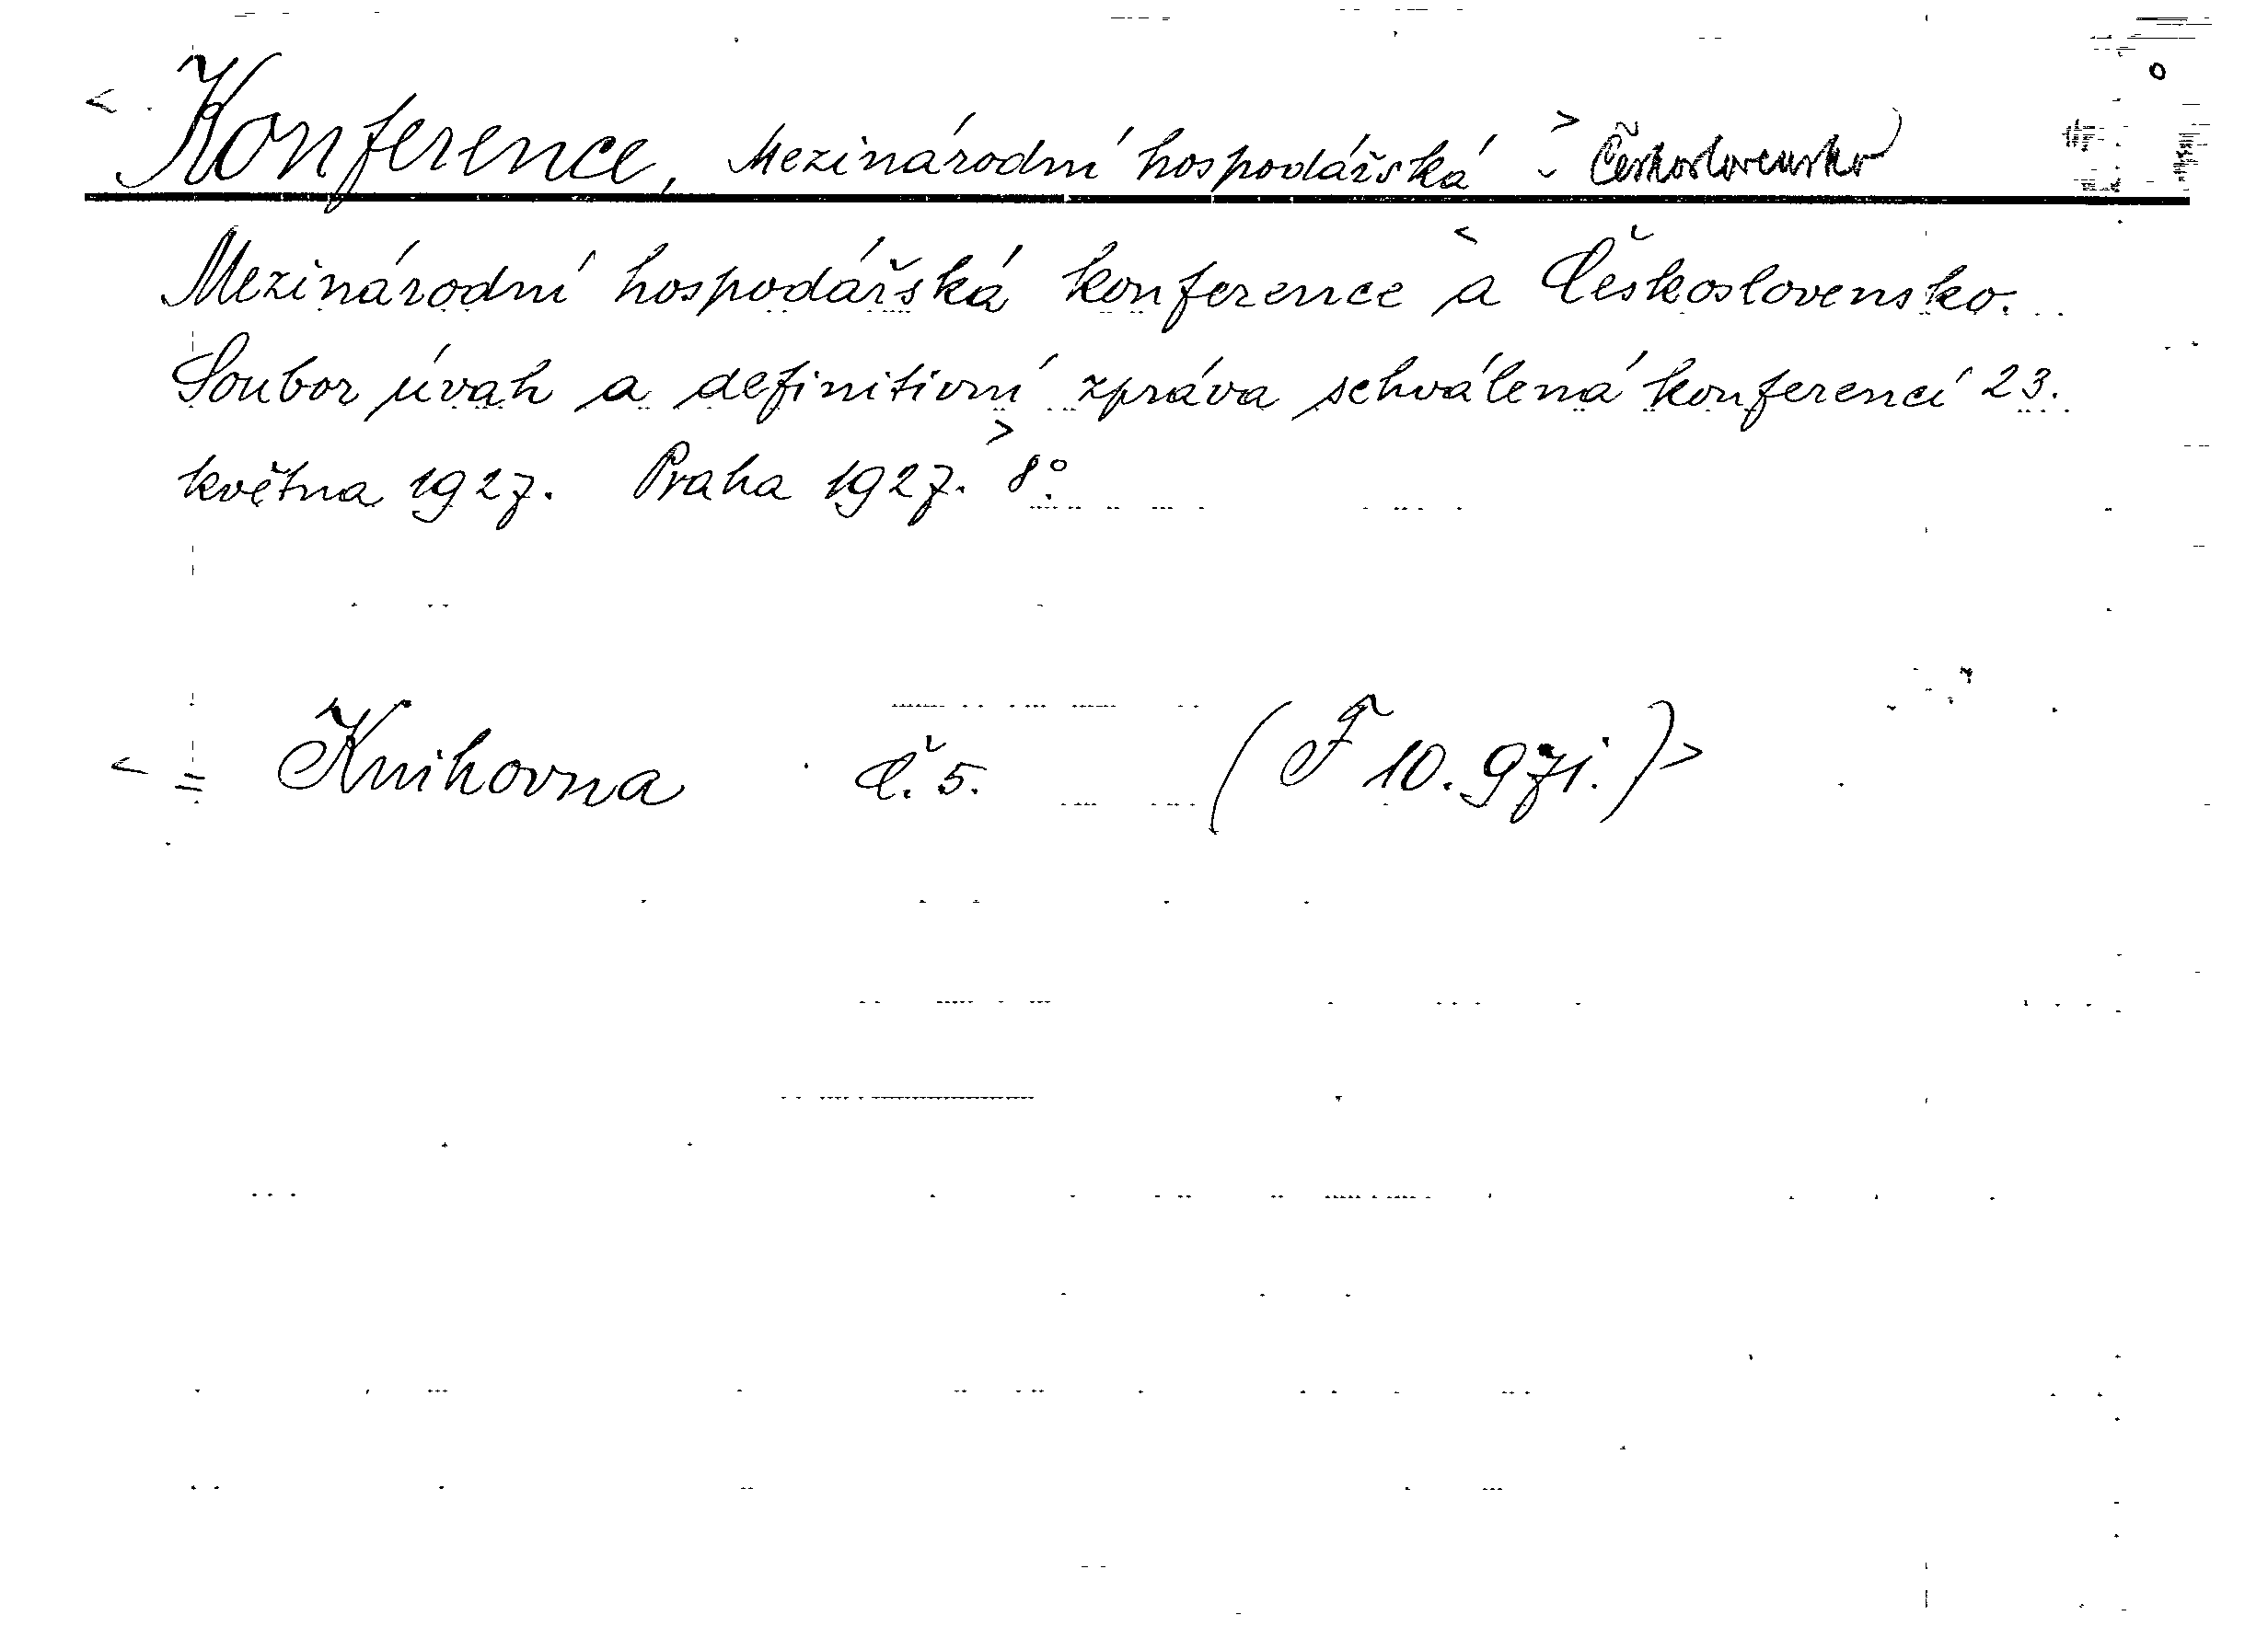 < Konference, Mezinárodní hospodářská > Československo
Mezinárodní hospodářská konference a Československo.
Soubor úvah a definitivní zpráva schválená konferencí 23.
května 1927. Praha 1927. > 8°.
< = Knihovna č. 5. (F 10.971.) >